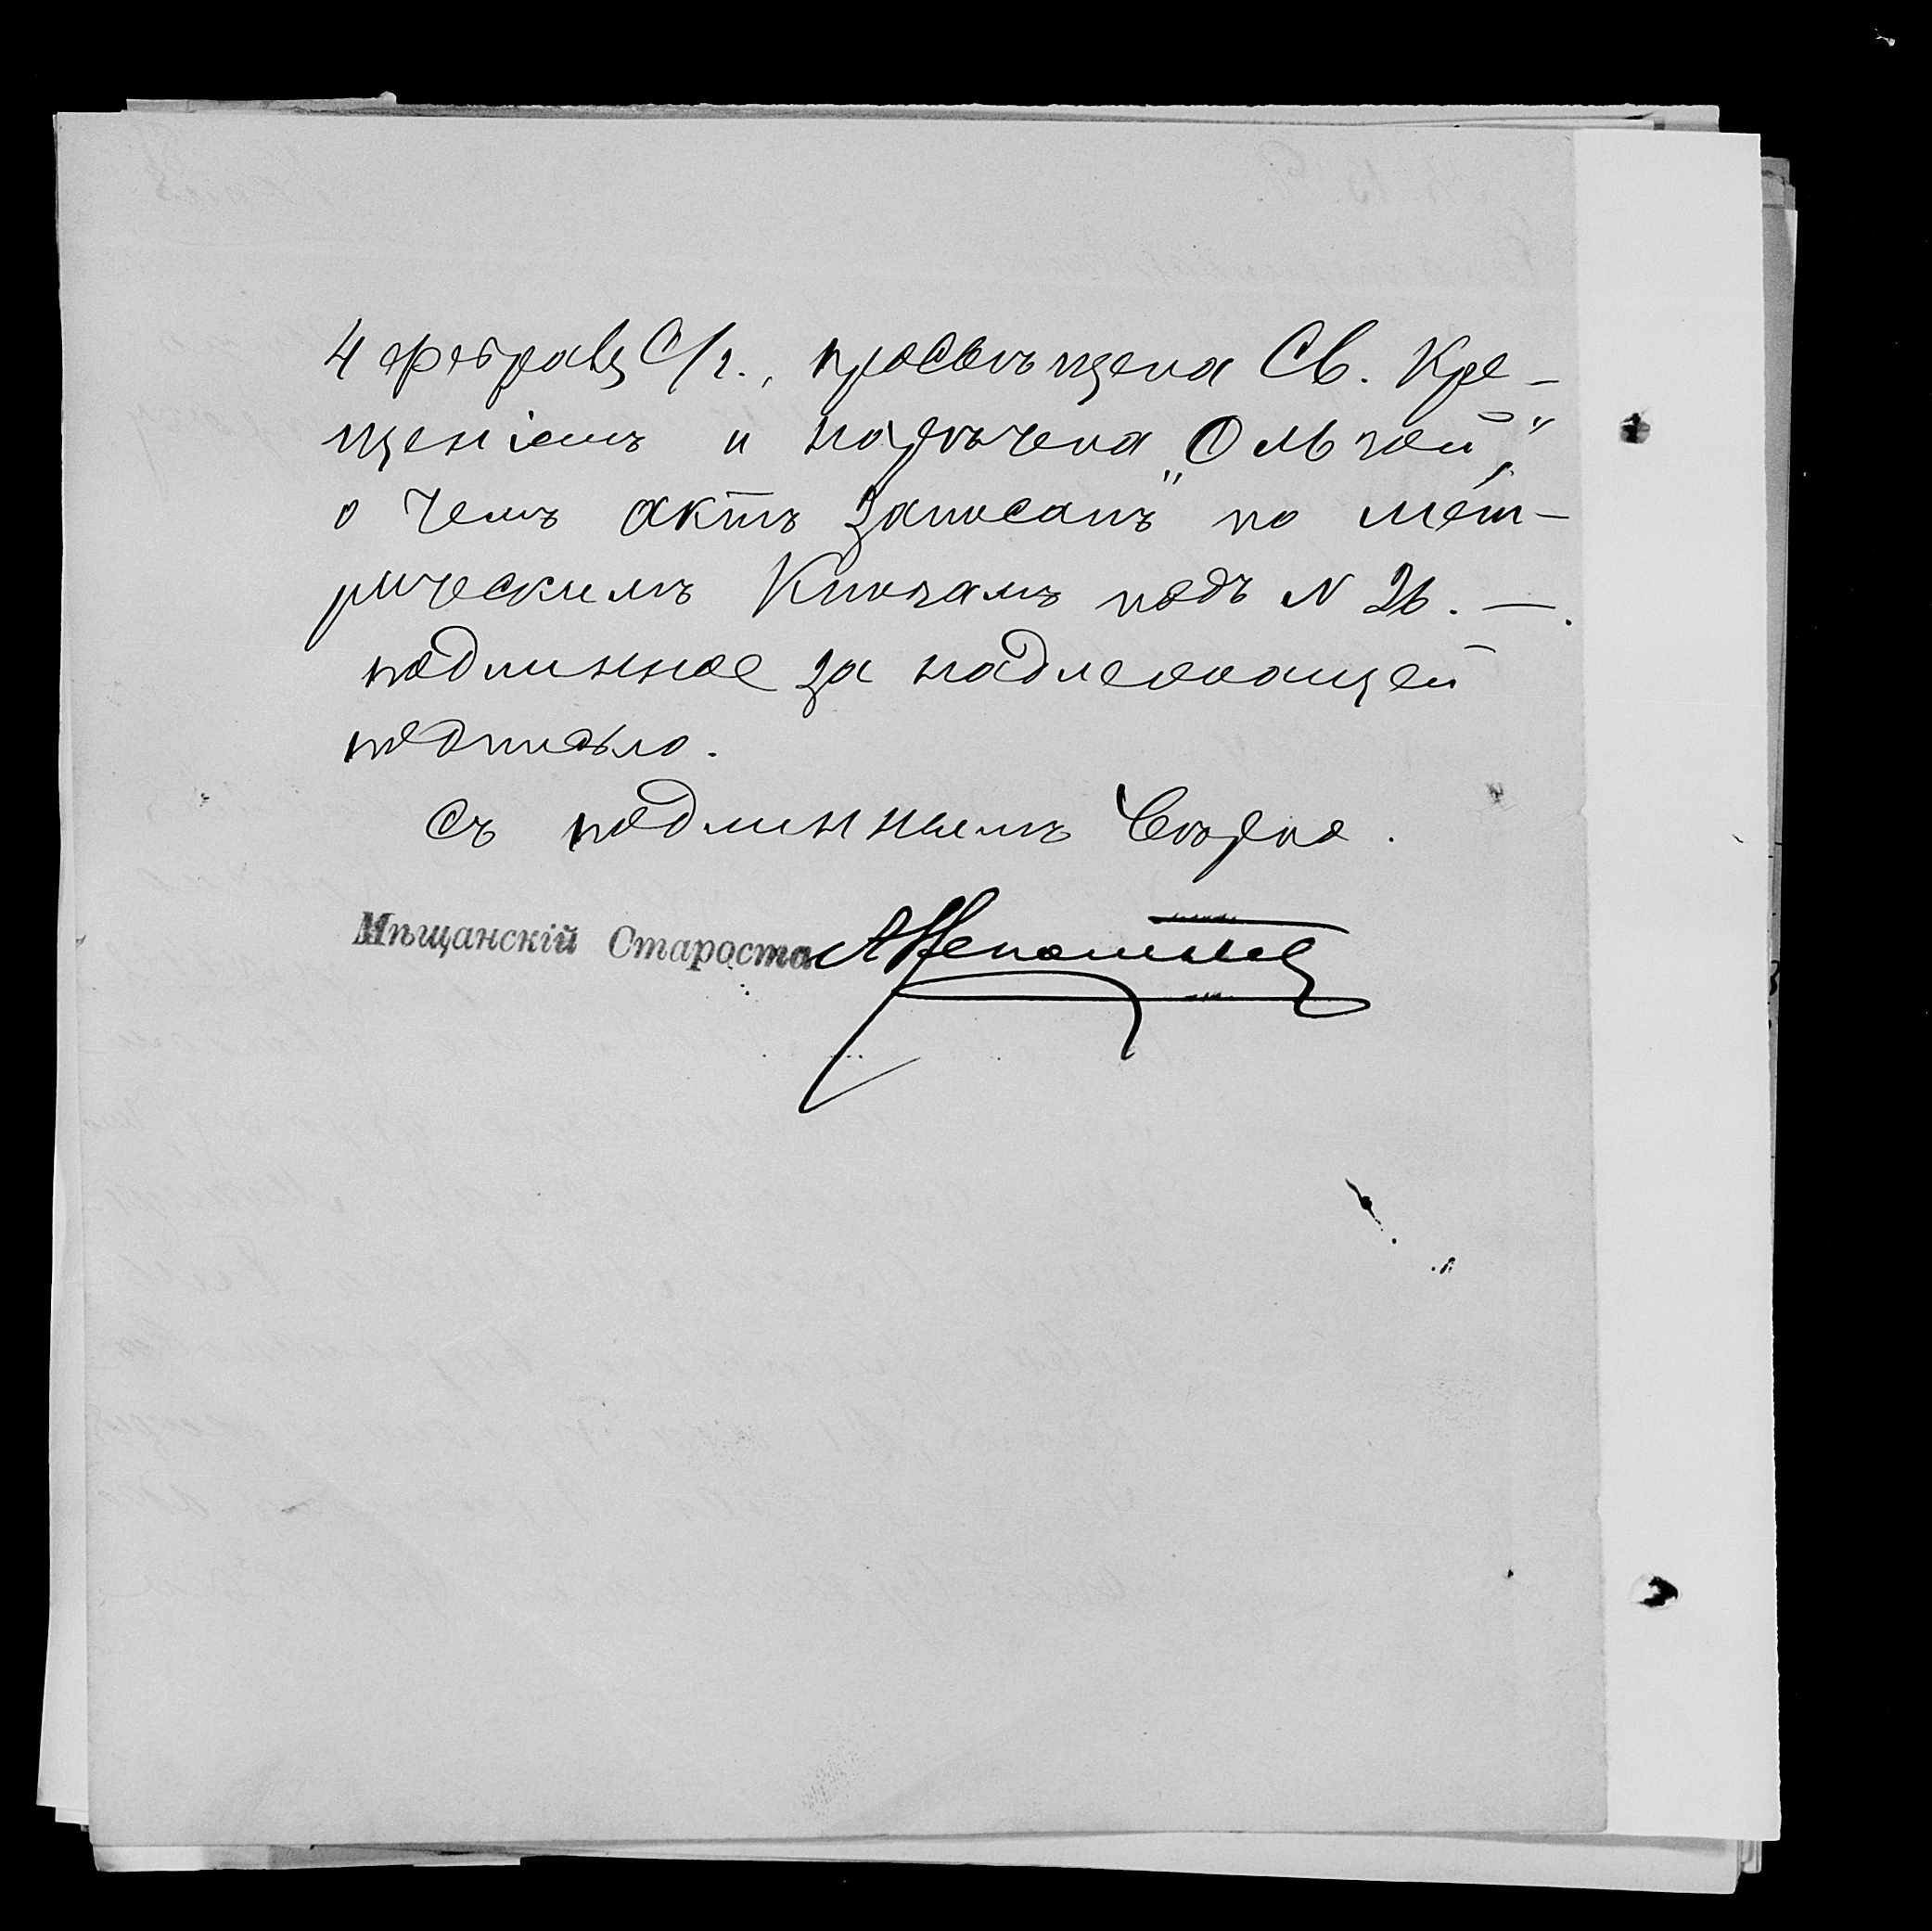 4 февраля с/г., просвѣщена Св. Кре-
щеніемъ и наречена „Ольгой“,
о чемъ актъ записанъ по мет-
рическимъ книгамъ подъ N 26. —.
подлинное за надлежащей
подписью.
Съ подлиннымъ вѣрно.
Мѣщанскій Староста